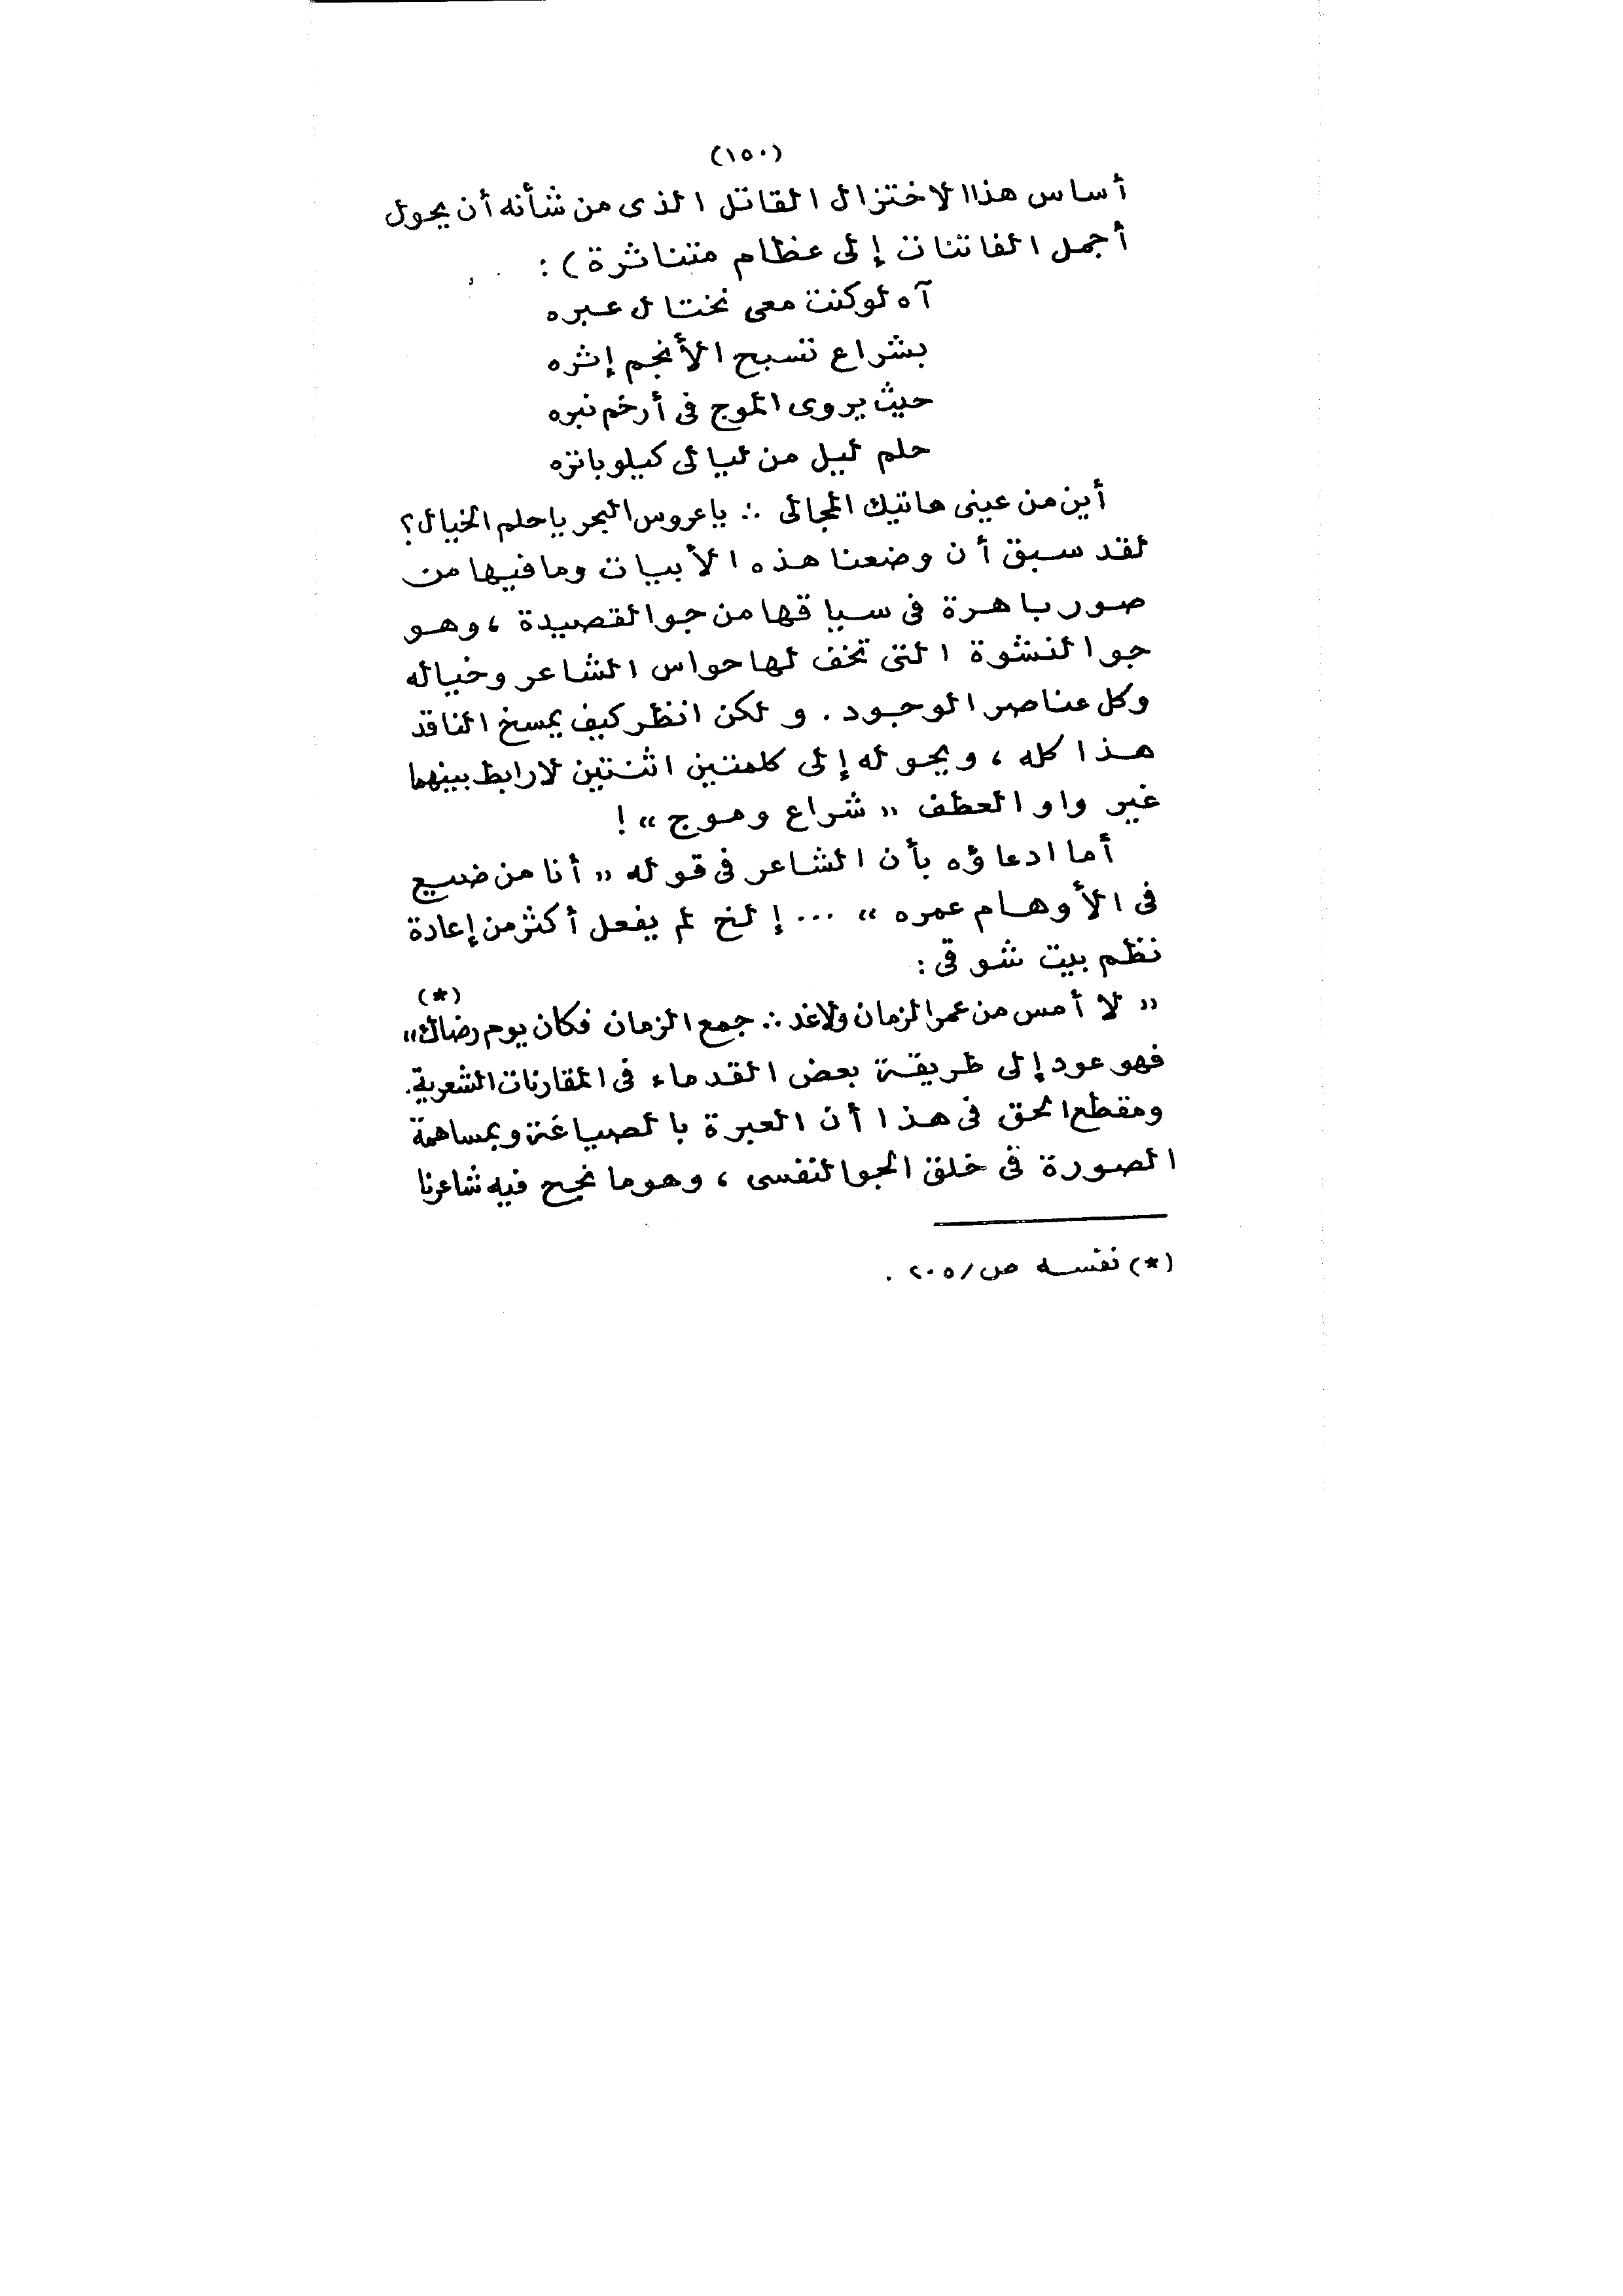 (١٥٠)
أساس هذا الاختزال القاتل الذى من شأنه أن يحول
أجمل الفاتنات إلى عظام متناثرة ) :
آه لو كنت معى نختال عبره
بشراع تسبح الأنجم إثره
حيث يروى الموج فى أرخم نبره
حلم ليل من ليالى كيلوباتره
أين من عينى هاتيك المجالى ∴ يا عروس البحر يا حلم الخيال ؟
لقد سبق أن وضعنا هذه الأبيات وما فيها من
صور باهرة فى سياقها من جو القصيدة ، وهو
جو النشوة التى تخف لها حواس الشاعر وخياله
وكل عناصر الوجود . و لكن انظر كيف يمسخ الناقد
هذا كله ، ويحوله إلى كلمتين اثنتين لا رابط بينهما
غير واو العطف « شراع وموج » !
أما ادعاؤه بأن الشاعر فى قوله « أنا من ضيع
فى الأوهام عمره » ... إلخ لم يفعل أكثر من إعادة
نظم بيت شوقى :
(*)
« لا أمس من عمر الزمان ولا غد ∴ جمع الزمان فكان يوم رضاك »
فهو عود إلى طريقة بعض القدماء فى المقارنات الشعرية .
ومقطع الحق فى هذا أن العبرة بالصياغة وبمساهمة
الصورة فى خلق الجو النفسى ، وهو ما نجح فيه شاعرنا
(*) نفسه ص/٢٠٥ .